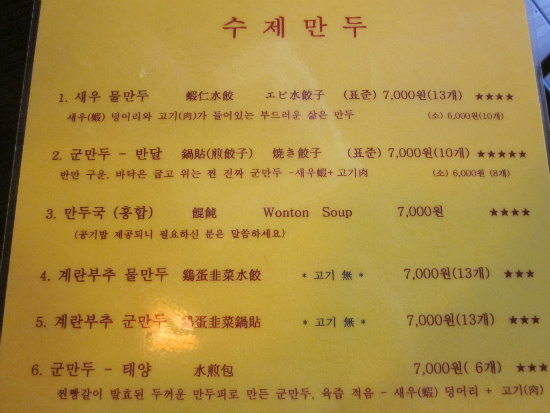 수제만두
1. 새우 물만두 蝦仁水餃 エビ水餃子 (표준) 7,000원(13개) ★★★★
새우(蝦) 덩어리와 고기(肉)가 들어있는 부드러운 삶은 만두 (소) 6,000원(10개)
2. 군만두 - 반달 鍋貼(煎餃子) 焼き餃子 (표준) 7,000원(10개) ★★★★★
반만 구운, 바닥은 굽고 위는 찐 진짜 군만두 -새우蝦+고기肉 (소) 6,000원 (8개)
3. 만두국 (홍합) 餛飩 Wonton Soup 7,000원 ★★★★
(공기밥 제공되니 필요하신 분은 말씀하세요)
4. 계란부추 물만두 鷄蛋韭菜水餃 * 고기 無 * 7,000원(13개) ★★★
5. 계란부추 군만두 鷄蛋韭菜鍋貼 * 고기 無 * 7,000원(13개) ★★★
6. 군만두 - 태양 水煎包 7,000원( 6개) ★★★
찐빵같이 발효된 두꺼운 만두피로 만든 군만두, 육즙 적음 - 새우(蝦) 덩어리 + 고기(肉)